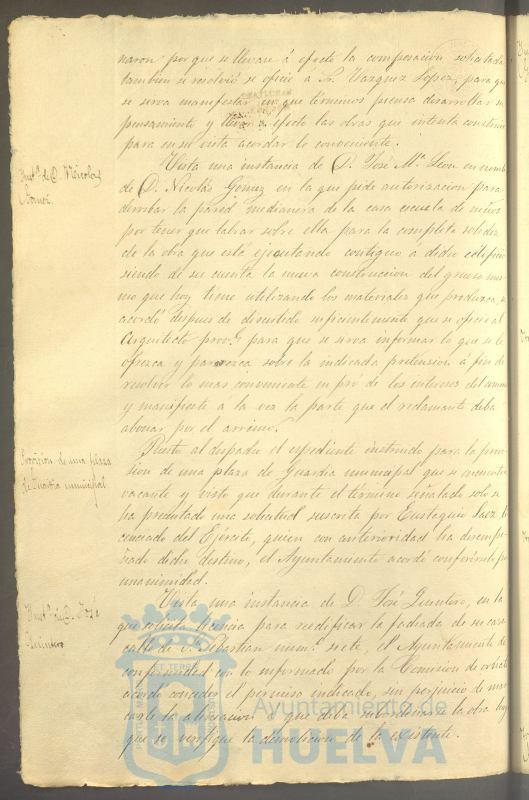 naron por que se llevase á efecto la composicion solicitada
tambien se resolvió se oficie á Sr. Vazquez Lopez, para que
se sirva manifestar en que términos piensa desarrollar su
pensamiento y llevar á efecto las obras que intenta construir
para en su vista acordar lo conveniente.
Inst.ª de D. Nicolas
Gomez.
Vista una instancia de D. José Mª Leon en nombre
de D. Nicolás Gomez en la que pide autorizacion para
derribar la pared medianera de la casa escuela de niños
por tener que labrar sobre ella para la completa solidez
de la obra que está ejecutando contiguo á dicho edificio
siendo de su cuenta la nueva construccion del grueso mis-
mo que hoy tiene utilizando los materiales que produzca, se
acordó despues de discutido suficientemente que se oficie al
Arquitecto prov.l para que se sirva informar lo que se le
ofrezca y parezca sobre la indicada pretension á fin de
resolver lo mas conveniente en pró de los intereses del comun
y manifieste á la vez la parte que el reclamante deba
abonar por el arrimo.
Provision de una plaza
de Guardia municipal
Puesto al despacho el espediente instruido para la provi-
sion de una plaza de Guardia municipal que se encuentra
vacante y visto que durante el término señalado solo se
ha presentado una solicitud suscrita por Eustaquio Saez li-
cenciado del Ejército, quien con anterioridad ha desempe-
ñado dicho destino, el Ayuntamiento acordó conferírsela por
unanimidad.
Inst.ª de D. José
Quintero
Vista una instancia de D. José Quintero, en la
que solicita licencia para reedificar la fachada de su casa
calle de S. Sebastian num.º siete, el Ayuntamiento de
conformidad con lo informado por la Comision de ornato
acordó conceder el permiso indicado, sin perjuicio de mar-
carle la alineacion á que deba subordinarse la obra luego
que se verifique la demolicion de la existente.
Ayuntamiento de
HUELVA